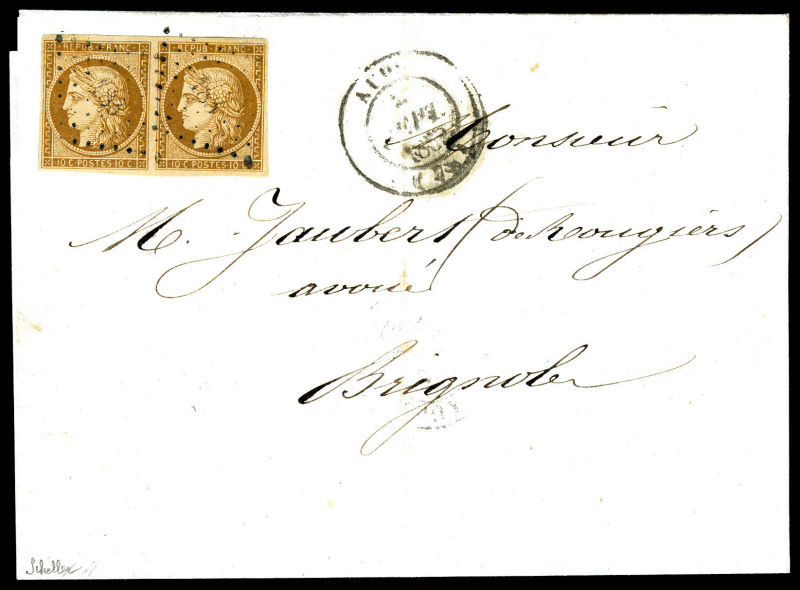 REPUB. FRANC. REPUB. FRANC.
10 C. POSTES 10 C. 10 C. POSTES 10 C.
SEPT.
Monsieur
M. Jaubert (de Rougiers)
avoué
Brignole
Scheller